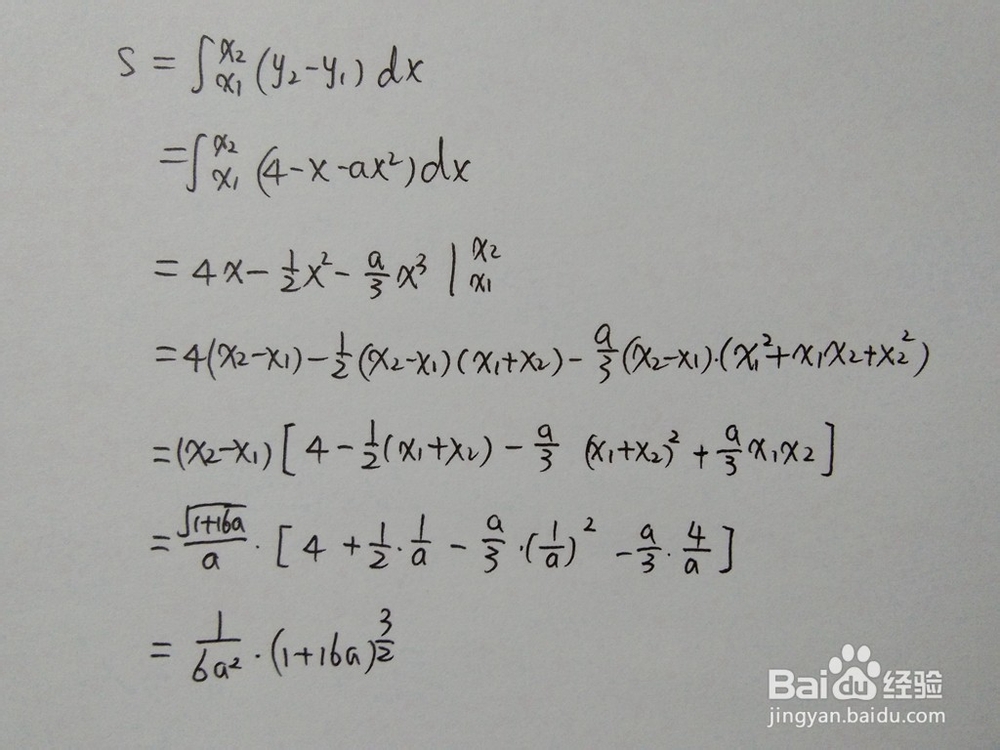 S = ∫_{x₁}^{x₂} (y₂-y₁) dx
= ∫_{x₁}^{x₂} (4-x-ax²) dx
= 4x - \frac{1}{2}x² - \frac{a}{3}x³ |_{x₁}^{x₂}
= 4(x₂-x₁) - \frac{1}{2}(x₂-x₁)(x₁+x₂) - \frac{a}{3}(x₂-x₁)·(x₁²+x₁x₂+x₂²)
= (x₂-x₁)[4 - \frac{1}{2}(x₁+x₂) - \frac{a}{3}(x₁+x₂)² + \frac{a}{3}x₁x₂]
= \frac{\sqrt{1+16a}}{a}·[4 + \frac{1}{2}·\frac{1}{a} - \frac{a}{3}·(\frac{1}{a})² - \frac{a}{3}·\frac{4}{a}]
= \frac{1}{6a²}·(1+16a)^{\frac{3}{2}}
Baidu 经验
jingyan.baidu.com